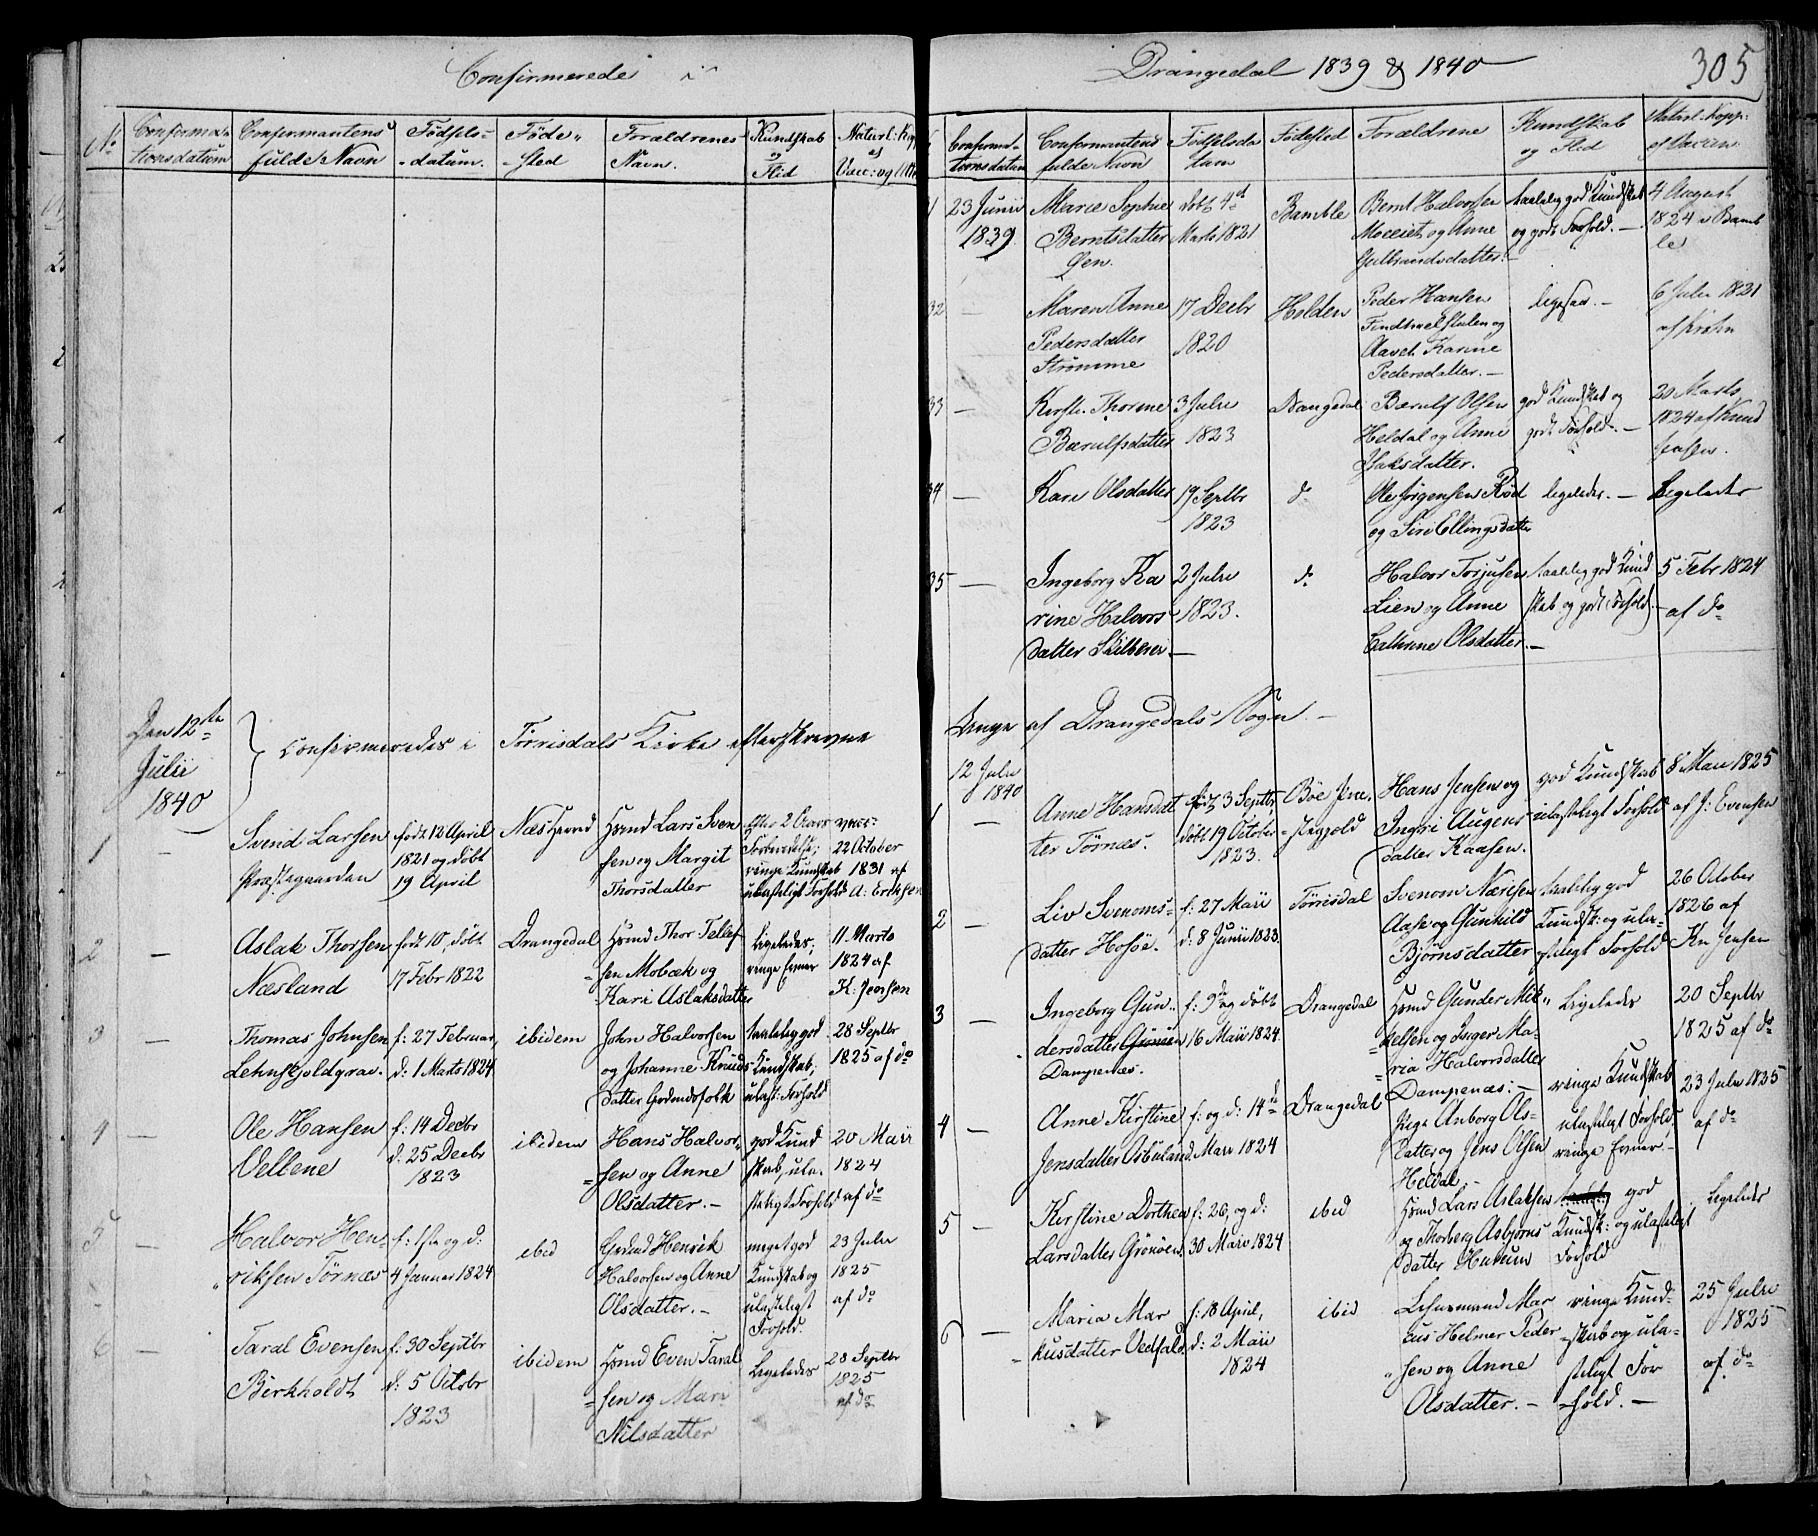 Confirmerede i
No
Confirma-
tionsdatum
Confirmantens
fulde Navn
Födsels-
-datum.
Føde-
-Sted
Forældrenes
Navn.
Kundskab
og
Flid
Naturl: Kop
Vacc: og
Den 12te
Julii
1840
confirmeredes i Tørrisdals Kirke efterskrevne
1 -
Svend Larsen
Præstegaarden
født 12 April
1821 og døbt
19 April
Næs
Lars Sven
sen og Margit
Thorsdatter
Efter 2 Aars
Forberedelse;
ringe Kundskab
ulasteligt Forhold
vacc:
22 October
1831 af
A: Eriksen
2 -
Aslak Thorsen
Næsland
født 10, døbt
17 Febr 1822
Drangedal
Thor Tellef
sen Mobæk og
Kari Aslaksdatter
Ligeledes;
ringe Evner
11 Marts
1824 af
K: Jensen
3 -
Thomas Johnsen
Lehnskjoldgrav.
f: 27 Februar,
d: 1 Marts 1824
ibidem
John Halvorsen
og Johanne Knuds
datter
taalelig god
Kundskab;
ulast: Forhold
28 Septbr
1825 af do
4 -
Ole Hansen
Vellene
f: 14 Decbr
d: 25 Decbr
1823
ibidem
Hans Halvor
sen og Anne
Olsdatter. -
god Kund
skab, ula-
steligt Forhold
20 Maii
1824
af do
5 -
Halvor Hen-
riksen Tørnæs
f: 1ste og d:
4 Januar 1824
ibid
Henrik
Halvorsen og Anne
Olsdatter. -
meget god
Kundskab og
ulasteligt
Forhold.
23 Julii
1825
af do
6 -
Taral Evensen
Birkholdt
f: 30 Septbr
d: 5 Octobr
1823
ibidem
Even Taral
sen og Mari
Nilsdatter
Ligeledes
28 Septbr
1825
af do
Drangedal 1839 & 1840
305
Confirma-
tionsdatum
Confirmantens
fulde Navn
Födselsda
tum
Fødested
Forældrene
Kundskab
og Flid
Naturl: Kopp:
el Vaccin
1
23 Junii
1839.
Marie Sophie
Berntsdatter
Øen.
døbt 4de
Marts 1821
Bamble
Bernt Halvorsen
og Anne
Gulbrandsdatter. -
taalelig god Kundskab
og godt Forhold. -
4 August
1824 i Bamb
le
32 -
Maren Anne
Pedersdatter
Strømme
17 Decbr
1820
Holden
Peder Hansen
og
Karine
Pedersdatter. -
ligesaa. -
6 Julii 1821
af
33 -
Kirst. Thorine
Bærulfsdatter
3 Julii
1823
Drangedal
Bærulf Olsen
Heldal og Anne
Isaksdatter.
god Kundskab og
godt Forhold. -
20 Marts
1824 af Knud
Jensen.
34 -
Kari Olsdatter
19 Septbr
1823
do
Ole Jörgensen Röd
og Siri Ellingsdatter
ligeledes. -
Ligeledes
35 -
Ingeborg Ka
rine Halvors
datter
2 Julii
1823.
do
Halvor Torjusen
Lien og Anne
Cathrine Olsdatter. -
taalelig god Kund
skab og godt Forhold. -
5 Febr 1824
af do
Unge af Drangedals Sogn. -
12 Julii
1840
1 -
Anne Hansdat
ter Törnes.
født 3 Septbr
döbt 19 October
1823.
Böe
Hans Jensen og
Ingri Augens
datter Kaasen.
god Kundskab
ulasteligt Forhold
8 Maii 1825
af J: Evensen
2 -
Liv Svenoms-
datter Hosöe.
f: 27 Maii
d: 8 Junii 1823.
Tørrisdal
Svenom Næresen
Aase og Gunhild
Björnsdatter
taalelig god
Kundsk: og ula-
steligt Forhold
26 October
1826 af
Kn Jensen
3 -
Ingeborg Gun-
dersdatter
Dampenæs.
f: 9de og døbt
16 Maii 1824.
Drangedal
Gunder Mik-
kelsen og Inger Ma-
ria Halvorsdatter
Dampenæs: -
Ligeledes
20 Septbr
1825 af do
4 -
Anne Kirstine
Jensdatter
f: og d: 14de
Marr 1824
Drangedal
Pige Anborg Ols-
datter og Jens Olsen
Heldal. -
ringe Kundskab
ulasteligt Forhold,
ringe Evner -
23 Julii 1825
af do
5 -
Kirstine Dorthea
Larsdatter Grönöen
f: 26, og d:
30 Marr 1824
ibid
Lars Aslaksen
og Thorberg Asbjørns
datter
god
Kundsk: og ulasteligt
Forhold
Ligeledes
6 -
Maria Mar
kusdatter Vedfald
f: 18 April,
d: 2 Maii
1824
ibid
Mar
cus Helmer Peder
sen og Anne
Olsdatter. -
ringe Kund-
skab og ula-
steligt For
hold. -
25 Julii
1825
af do